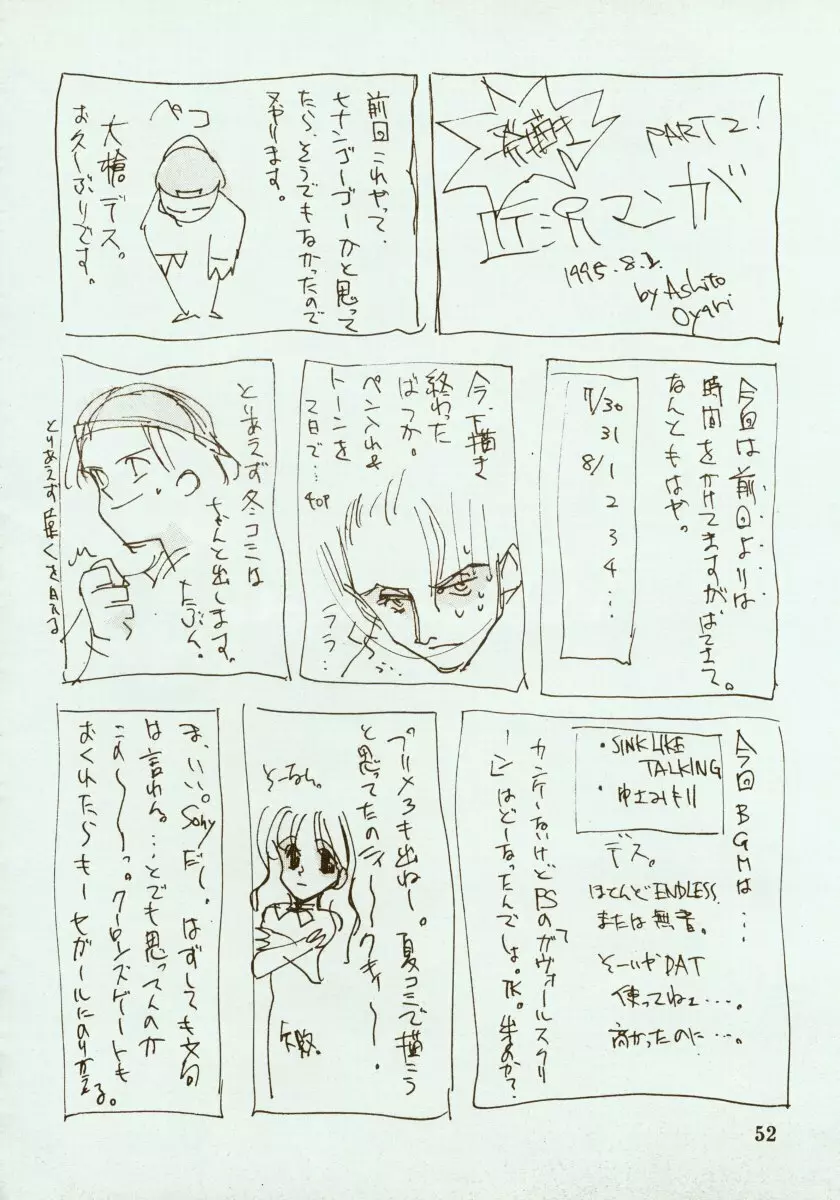 PART2!
マンガ
1995.8.2.
by Ashito
Oyari
前回これやって、
ヒナンゴーゴーかと思って
たら、そうでもなかったので
又やります。
ペコ
大槍デス。
お久しぶりです。
今回は前回よりは
時間をかけてますが
なんともはや。
7/30
31
8/1
2
3
4
…
今、下描き
終わった
ばっか。
ペン入れ&
トーンを
2日で…
40P
ララ…
とりあえず冬コミは
ちゃんと出します。
たぶん。
とりあえず
今回BGMは…
・SINK LIKE
TALKING
・
デス。
ほとんどENDLESS
または無音。
そーいやDAT
使ってねェ…。
高かったのに…。
カンケーないけどPSの「ガヴォールスクリ
ーン」はどーなったんでしょ。TK。出るのか?
プリメ3も出ねー。夏コミで描こう
と思ってたのにィ〜〜クキィ〜〜。
そーなん。
ま、いい。Sonyだし。はずしても文句
は言われん。…とでも思ってんのか
この〜〜〜っ。クーロンズゲートも
おくれたらもーセガールにのりかえる。
52